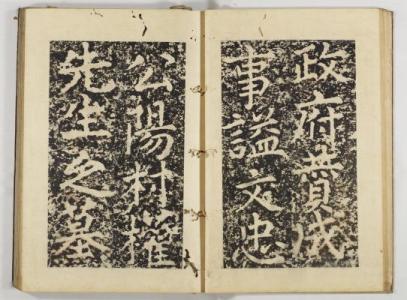 政府贊成
事謚文忠
公陽村權
先生之墓